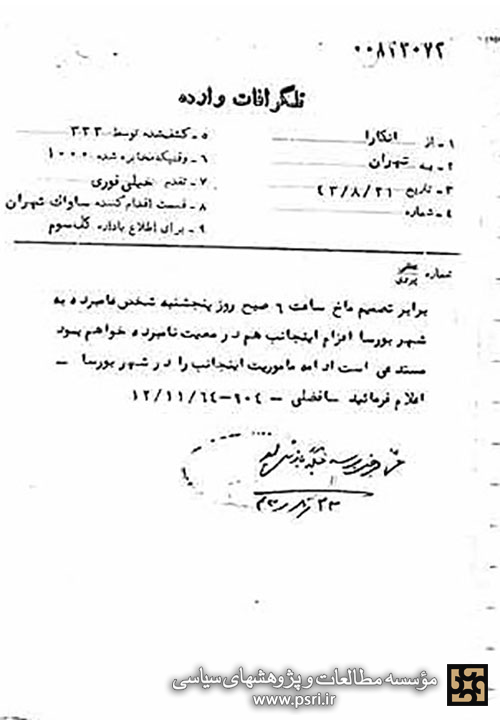 ۰۰۸۲۳۰۷۲
تلگرافات وارده
۱ - از انکارا
۲ - به تهران
۳ - تاریخ ۴۳/۸/۲۱
۴ - شماره
۵ - کشف شده توسط ۳۲۳
۶ - وقتیکه مخابره شده ۱۰۰۰
۷ - تقدم خیلی فوری
۸ - قسمت اقدام کننده ساواک تهران
۹ - برای اطلاع باداره کل سوم
شماره
برابر تصمیم ماخ ساعت ۶ صبح روز پنجشنبه شخص نامبرده به
شهر بورسا اعزام اینجانب هم در معیت نامبرده خواهم بود
مستدعی است ادامه ماموریت اینجانب را در شهر بورسا -
اعلام فرمائید سافضلی - ۹۰۴-۱۲/۱۱/۶۴
مؤسسه مطالعات و پژوهشهای سیاسی
www.psri.ir